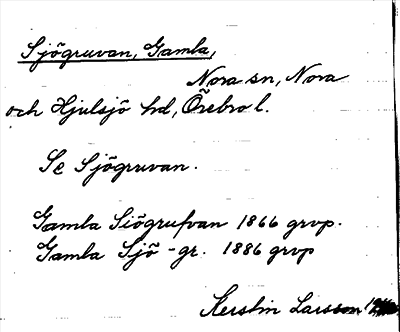 Sjögruvan, Gamla,
Nora sn, Nora
och Hjulsjö hd, Örebro l.
Se Sjögruvan.
Gamla Siögrufvan 1866 grvp.
Gamla Sjö-gr. 1886 grvp
Kerstin Larsson